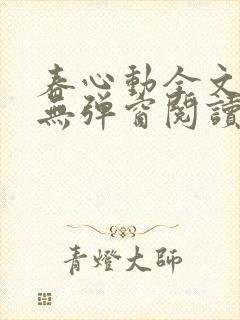 春心動全文
無彈窗閱讀
青燈大師